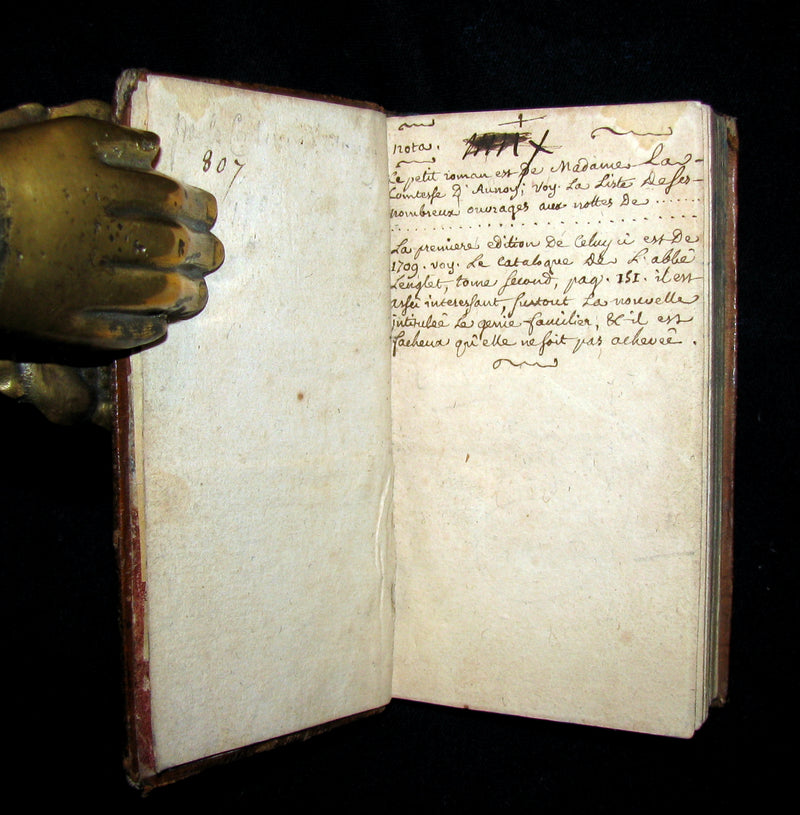 807
nota.
Le petit roman est de Madame La-
Comtesse d'Aunoy; voy. La Liste de ses-
nombreux ouvrages aux nottes de ......
La premiere edition de Celuy ci est De
1709. voy. Le catalogue de L'abbé
Lenglet, tome second, pag. 151. il est
assés interessant, surtout La nouvelle
intituleé Le genie familier, & il est
facheux qu'elle ne soit pas acheveé.